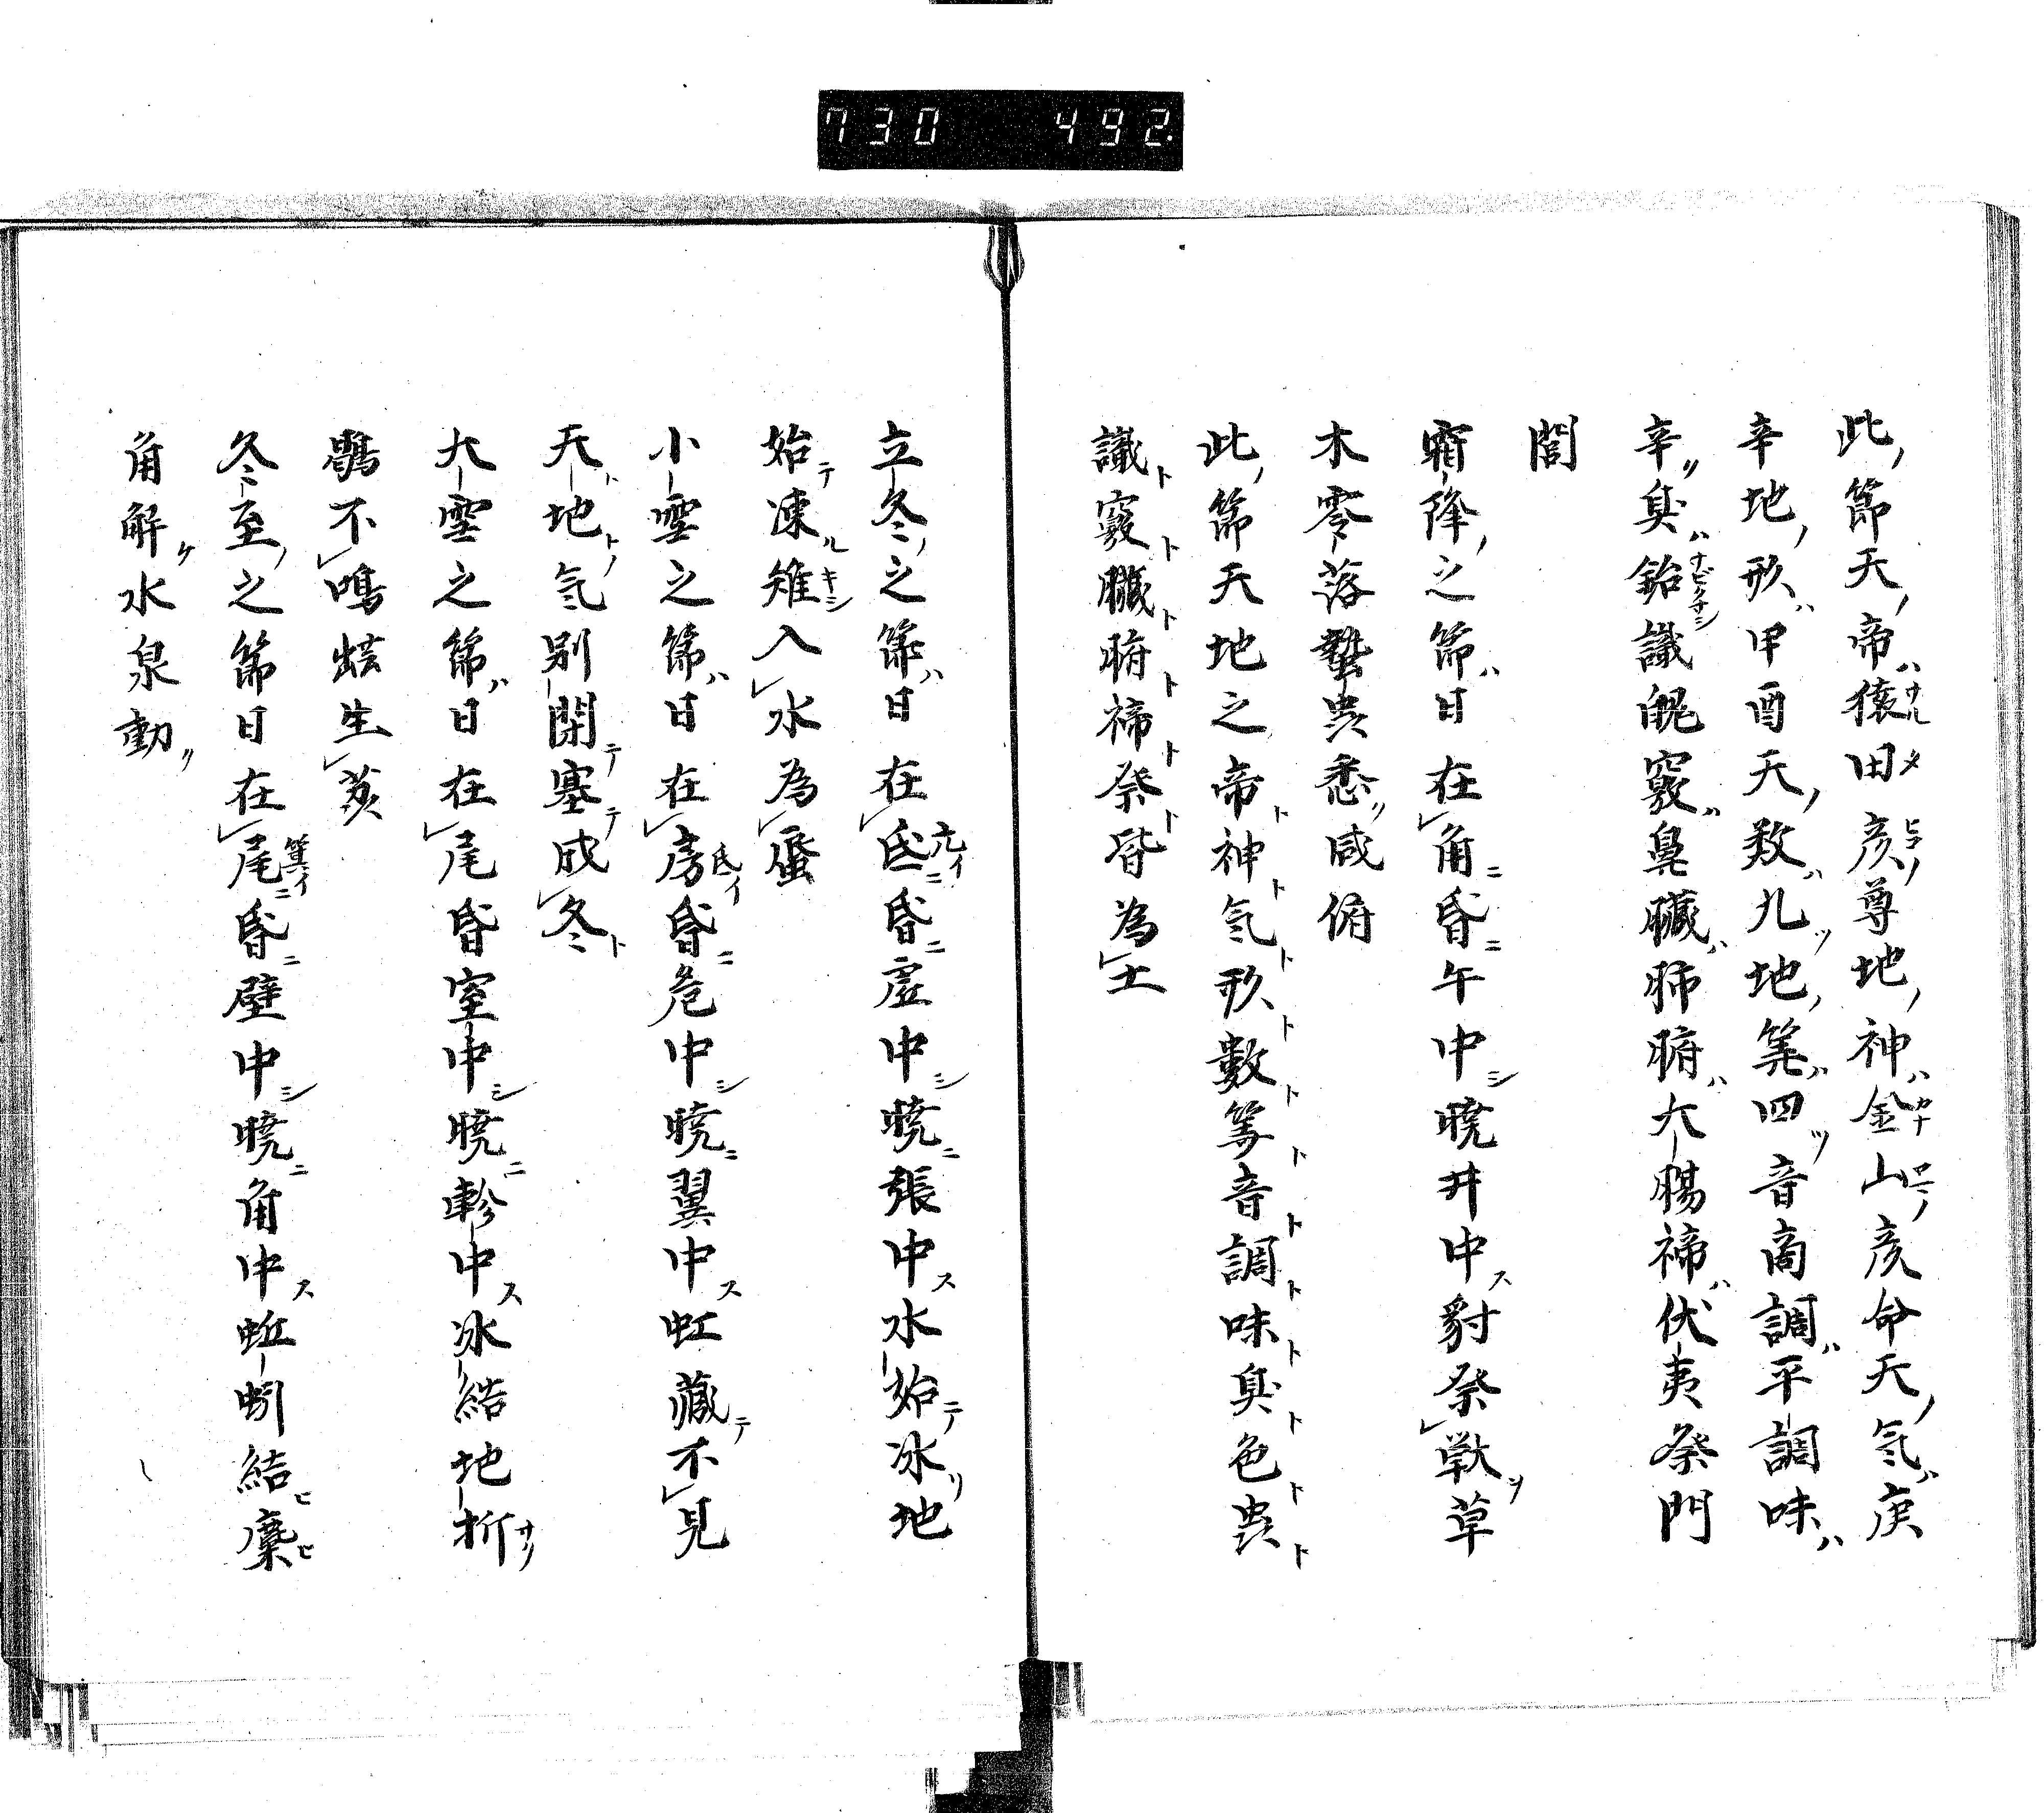 730 492
此ノ節天ノ帝ハ猿田彦ノ尊地ノ神ハ金山彦命天ノ気ハ庚
辛地ノ形ハ申酉天ノ数ハ九ツ地ノ筭ハ四ツ音商調ハ平調味ハ
辛リ臭ハ鉛識魄竅ハ鼻臓ハ肺腑ハ大腸禘ハ伏夷祭門
閭
霜降ノ之節ハ日在角ニ昏ニ午中シ暁井中ス豺祭獣ヲ草
木零落蟄虫悉ツ咸俯
此ノ節天地之帝ト神ト気ト形ト數ト筭ト音ト調ト味ト臭ト色ト虫ト
識ト竅ト臓ト腑ト禘ト祭ト皆為土
立冬ノ之節ハ日在氐ニ亢イ昏ニ虚中シ暁ニ張中ス水始テ氷リ地
始テ凍ル雉キシ入水為蜃
小雪之節ハ日在房氐イ昏ニ危中シ暁ニ翼中ス虹藏テ不見
天ト地トノ気別閉テ塞テ成冬ト
大雪之節ハ日在尾昏室中シ暁ニ軫中ス氷結地折サケ
鶡不鳴生
冬至ノ之節日在尾ニ箕イ昏ニ壁中シ暁ニ角中ス蚯蚓結ヒ麋ヒ
角解ケ水泉動ク